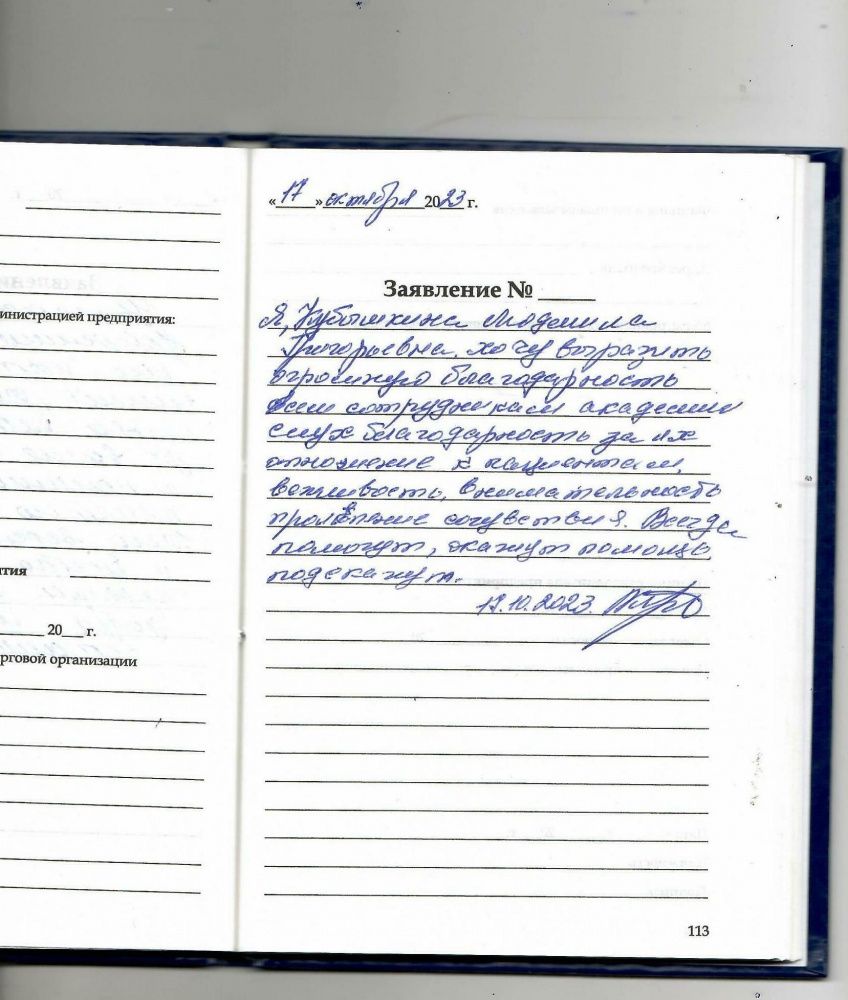 министрацией предприятия:
тия
20 г.
рговой организации
«17» октября 2023 г.
Заявление №
Я, Кубышкина Людмила
Григорьевна, хочу выразить
огромную благодарность
всем сотрудникам академии
слух благодарность за их
отношение к пациентам,
вежливость, внимательность
проявление сочувствия. Всегда
помогут, окажут помощь,
подскажут.
17.10.2023.
113